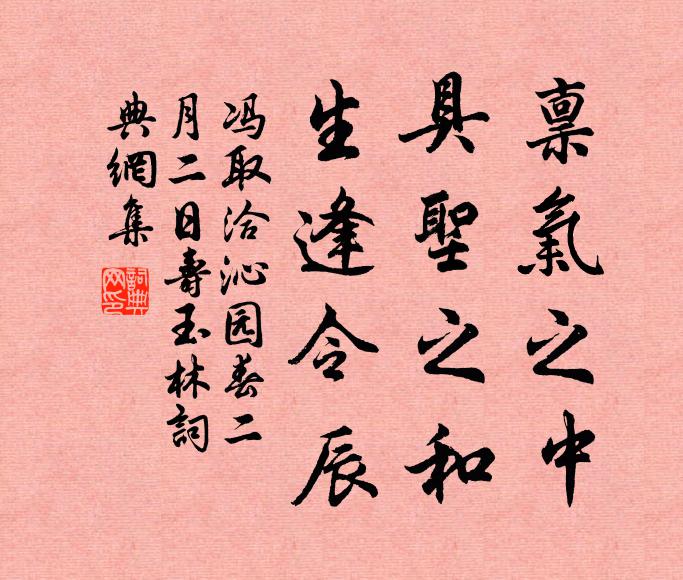 稟氣之中
具聖之和
生逢令辰
冯取洽沁园春二
月二日壽玉林詞
典網集
詞典網印